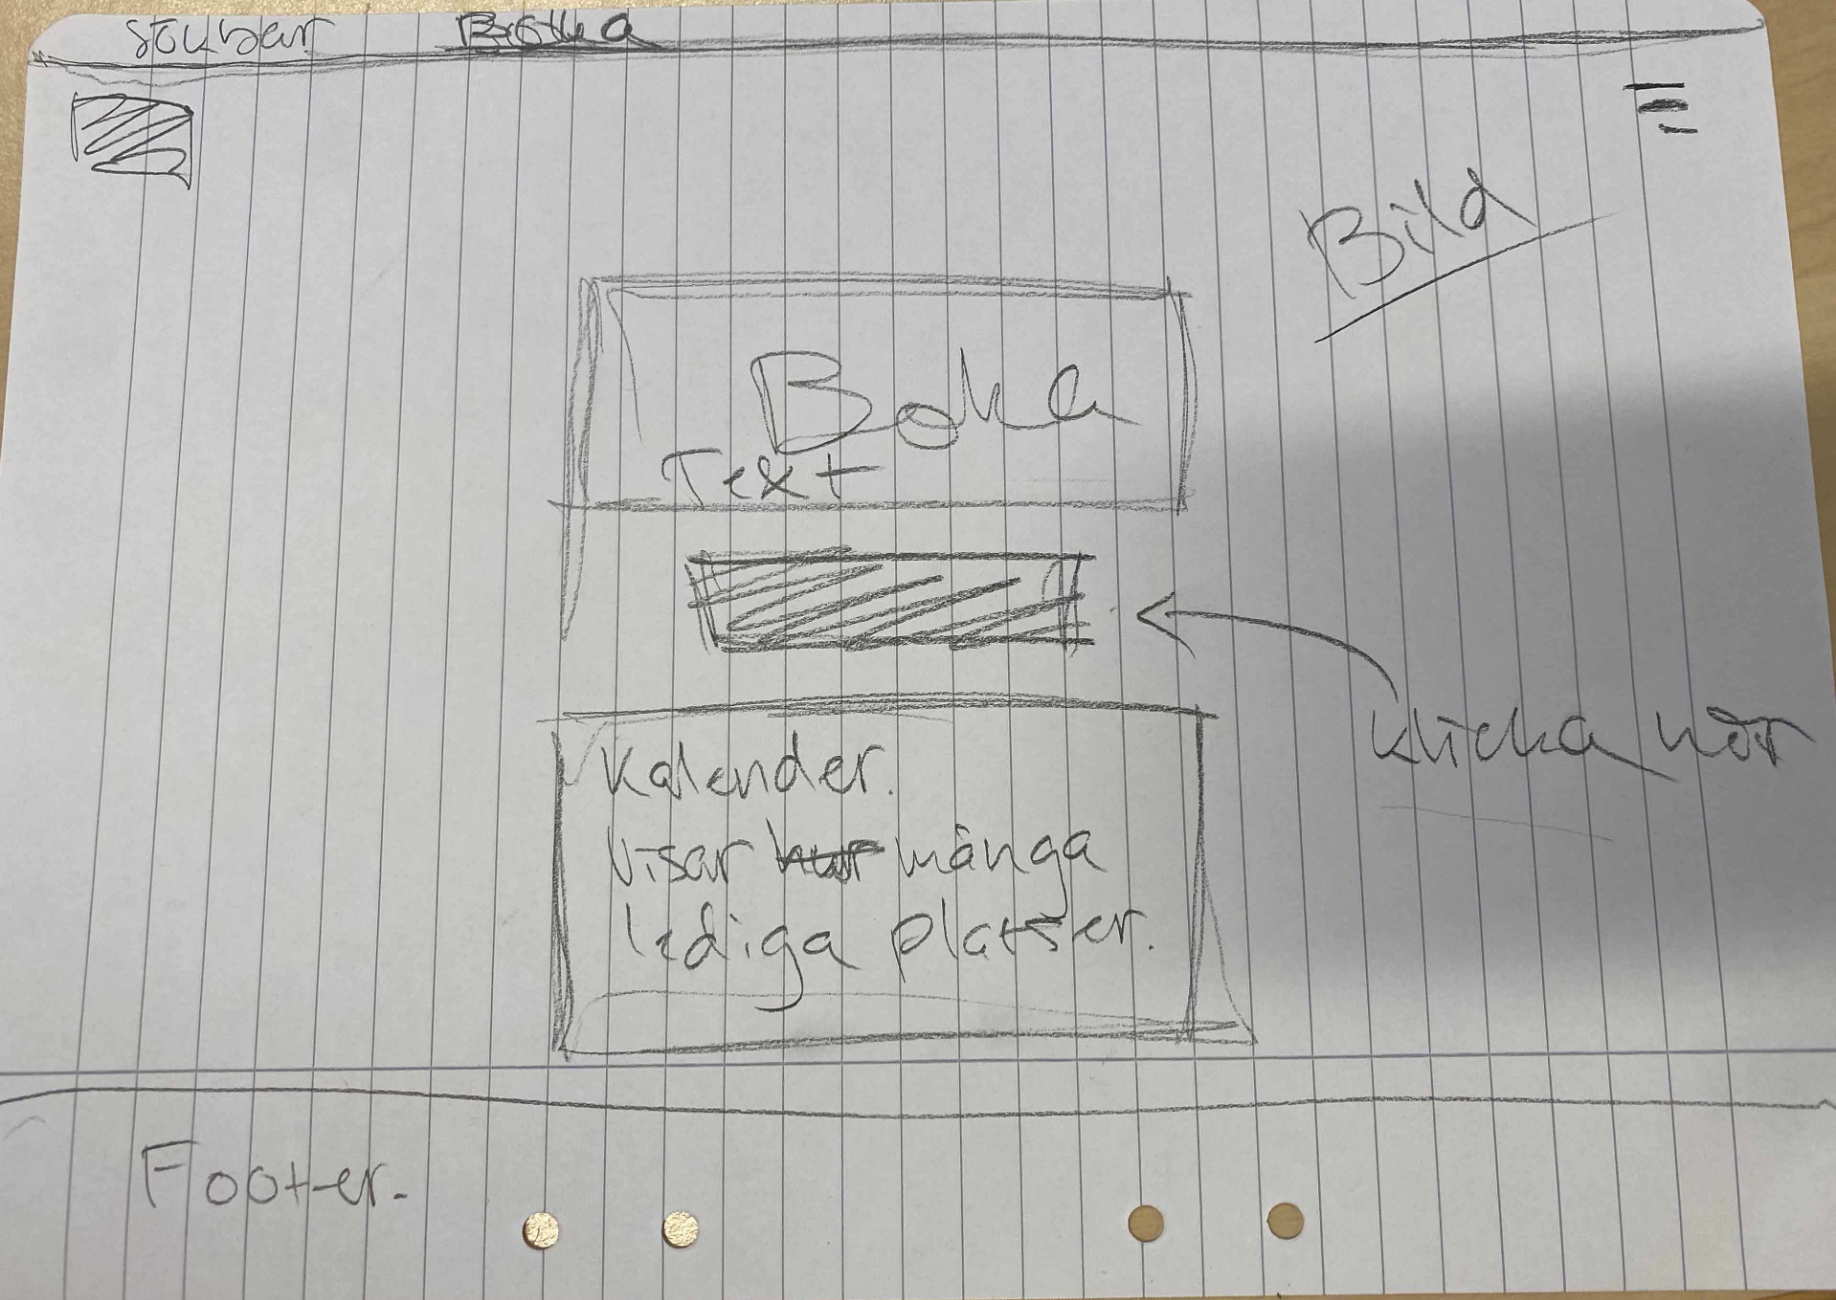 Sökbar Boka
Bild
Boka
Text
Klicka här
Kalender.
Visar hur många
lediga platser.
Footer.